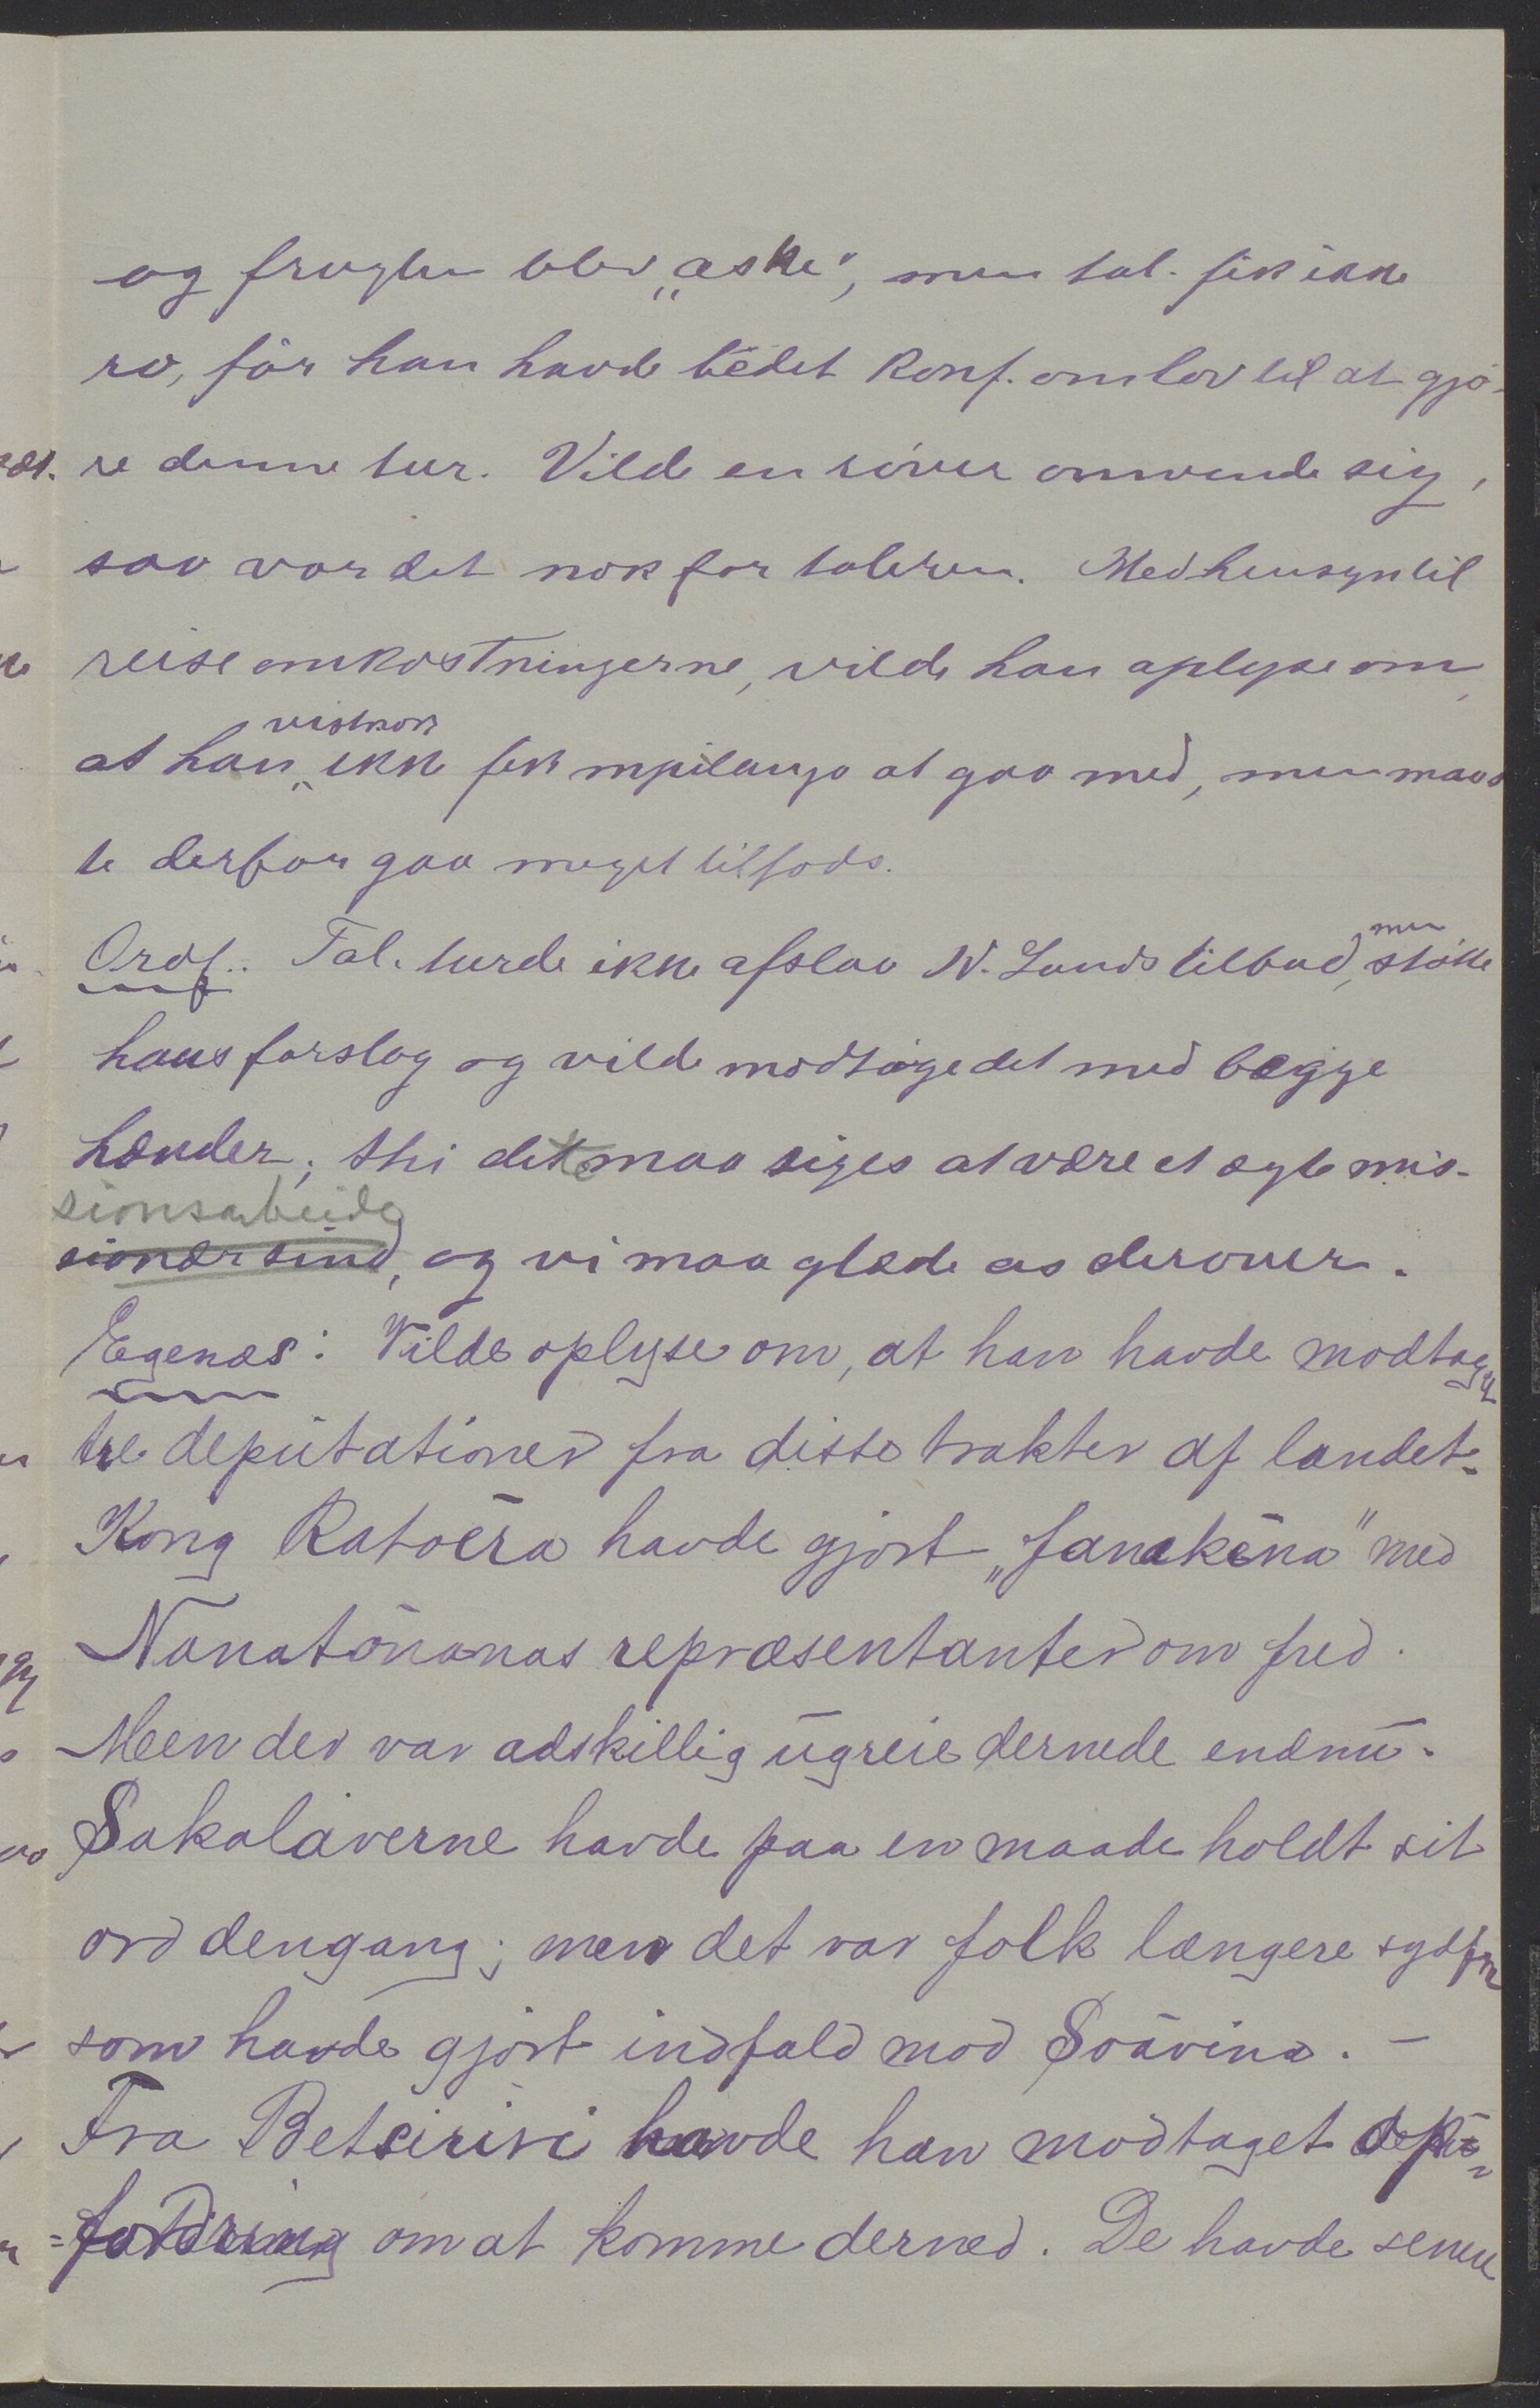 og frugten blev „aske", men tal. fik ikke
ro, før han havde bedet Konf. om lov til at gjø-
re denne tur. Vilde en røver omvende sig,
saa var det nok for taleren. Med hensyn til
reiseomkostningerne, vilde han oplyse om,
at han vistnok ikke fik mpilanja at gaa med, men maat
te derfor gaa meget tilfods.
Ordf.. Tal. turde ikke afslaa N. Lunds tilbud, men støtte
hans forslag og vilde modtage det med begge
hænder; thi dette maa siges at være et ægte mis-
sionsarbeide
sionærsind, og vi maa glæde os derover.
Egenæs: Vilde oplyse om, at han havde modtaget
tre deputationer fra disse trakter af landet.
Kong Ratoera havde gjort „fanekena" med
Nanatonanas repræsentanter om fred.
Men der var adskillig ugreie dernede endnu.
Sakalaverne havde paa en maade holdt sit
ord dengang; men det var folk længere sydfra
som havde gjort indfald mod Soavina. –
Fra Betsiriri havde han modtaget op-
=fordring om at komme derned. De havde senere